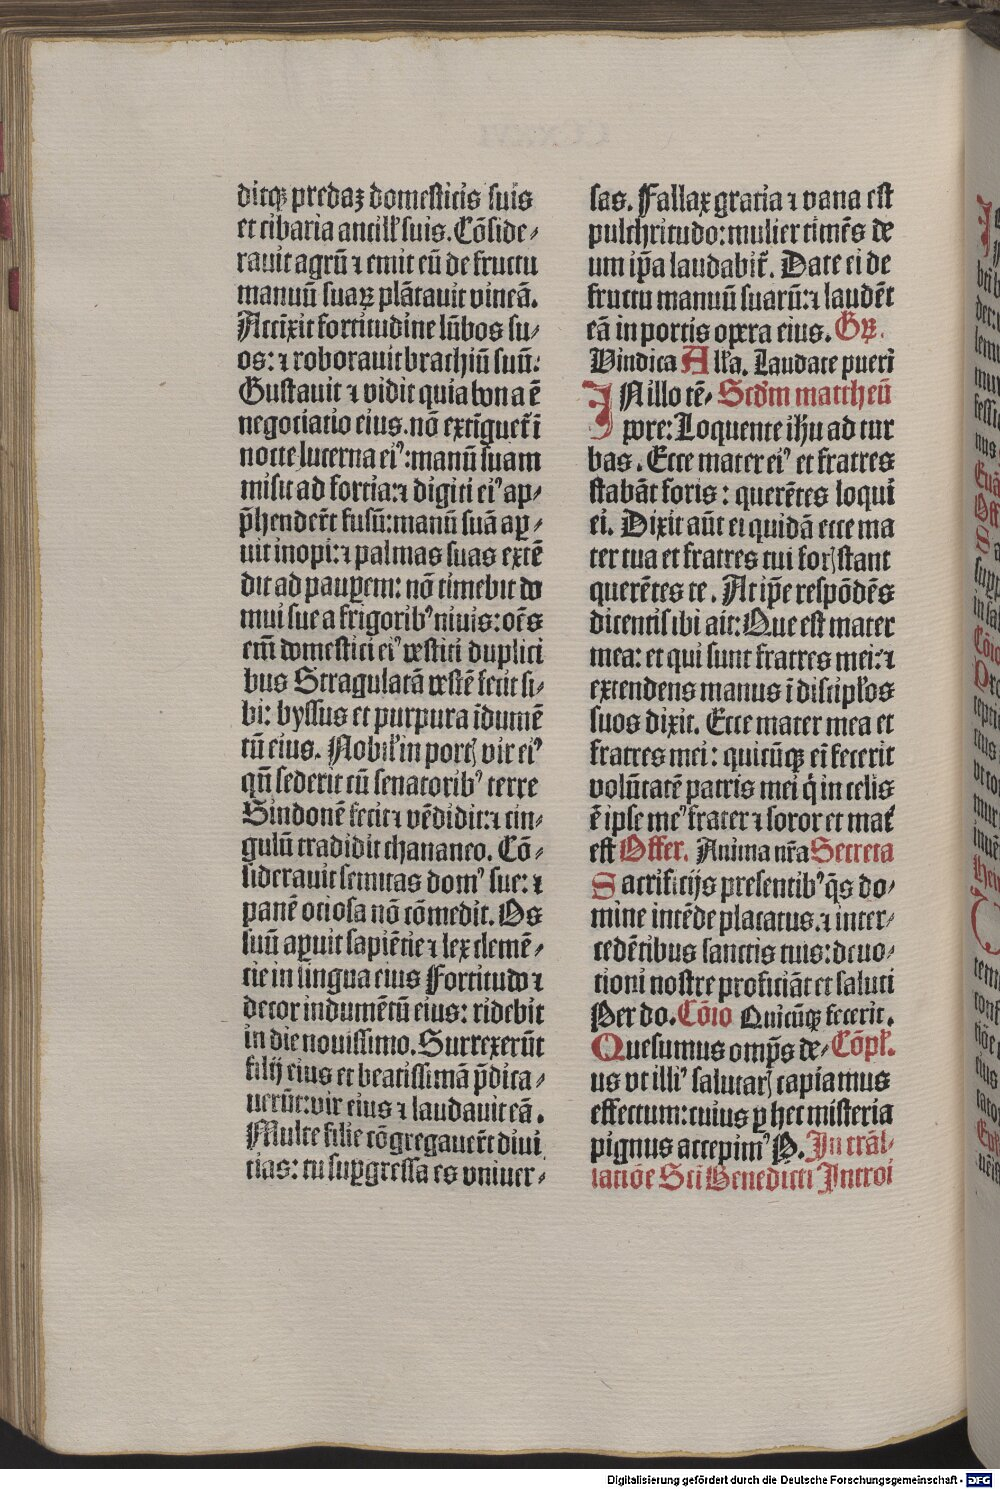 ditqꝫ predaꝫ domesticis suis
et cibaria ancill' suis. Cōside⸗
rauit agrū ⁊ emit eū de fructu
manuū suaꝝ plātauit vineā.
Accīxit fortitudine lūbos su⸗
os: ⁊ roborauit brachiū suū:
Gustauit ⁊ vidit quia bona ē
negotiatio eius. nō extīguet̄ ī
nocte lucerna eiꝰ: manū suam
misit ad fortia: ⁊ digiti eiꝰ ap⸗
p̄hender̄t fusū: manū suā aꝑ⸗
uit inopi: ⁊ palmas suas extē
dit ad pauꝑem: nō timebit do
mui sue a frigoribꝰ niuis: oēs
em̄ domestici eiꝰ vestiti duplici
bus Stragulatā vestē fecit si⸗
bi: byssus et purpura īdumē
tū eius. Nobil' in portꝭ vir eiꝰ
qn̄ sederit cū senatoribꝰ terre
Sindonē fecit ⁊ vēdidit: ⁊ cin⸗
gulū tradidit chananeo. Cō⸗
siderauit semitas domꝰ sue: ⁊
panē ociosa nō cōmedit. Os
suū aꝑuit sapiētie ⁊ lex clemē⸗
tie in lingua eius Fortitudo ⁊
decor indumētū eius: ridebit
in die nouissimo. Surrexerūt
filij eius et beatissimā p̄dica⸗
uerūt: vir eius ⁊ laudauit eā.
Multe filie cōgregauer̄t diui
tias: tu suꝑgressa es vniuer⸗
sas. Fallax gratia ⁊ vana est
pulchritudo: mulier timēs de
um ip̄a laudabit̄. Date ei de
fructu manuū suarū: ⁊ laudēt
eā in portis opera eius. Gꝝ.
Vindica All'a. Laudate pueri
IN illo tē⸗ Scd'm mattheū
pore: Loquente ihu ad tur
bas. Ecce mater eiꝰ et fratres
stabāt foris: querētes loqui
ei. Dixit aūt ei quidā ecce ma
ter tua et fratres tui forꝭ stant
querētes te. At ip̄e respōdēs
dicenti sibi ait: Que est mater
mea: et qui sunt fratres mei: ⁊
extendens manus ī discipl'os
suos dixit. Ecce mater mea et
fratres mei: quicūqꝫ em̄ fecerit
volūtatē patris mei q̇ in celis
ē ipse meꝰ frater ⁊ soror et mat̄
est Offer. Anima nr̄a Secreta
Sacrificijs presentibꝰ qs̄ do⸗
mine intēde placatus. ⁊ inter⸗
cedētibus sanctis tuis: deuo⸗
tioni nostre proficiāt et saluti
Per do. Cōio Quicūqꝫ fecerit.
Quesumus omp̄s de⸗ Cōpl'.
us vt illiꝰ salutarꝭ capiamus
effectum: cuius ꝑ hec misteria
pignus accepimꝰ P. In trāsl⸗
latiōe Scī Benedicti Introi
Digitalisierung gefördert durch die Deutsche Forschungsgemeinschaft - DFG